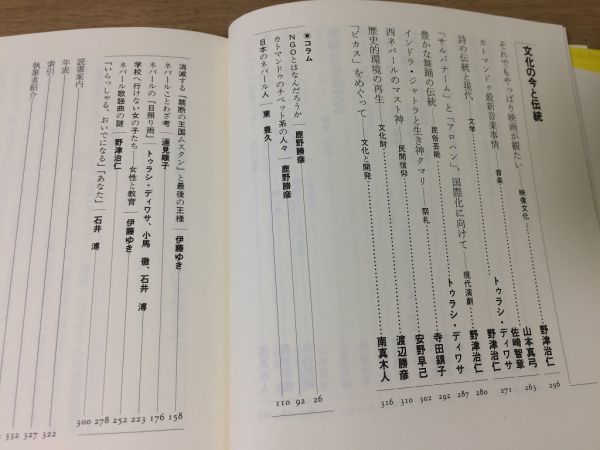 文化の今と伝統 野津治仁 256
それでもやっぱり映画が観たい 映像文化 山本真弓 263
カトマンドゥ最新音楽事情 音楽 佐崎智章 271
詩の伝統と現代 文学 トゥラシ・ディワサ 野津治仁 280
「サルバナーム」と「アロハン」、国際化に向けて 現代演劇 野津治仁 287
豊かな舞踊の伝統 民俗芸能 トゥラシ・ディワサ 292
インドラ・ジャトラと生き神クマリ 祭礼 寺田鎮子 297
西ネパールのマスト神 民間信仰 安野早己 302
歴史的環境の再生 文化財 渡辺勝彦 310
「ビカス」をめぐって 文化と開発 南真木人 316
■コラム
NGOとはなんだろうか 鹿野勝彦 26
カトマンドゥのチベット系の人々 鹿野勝彦 92
日本のネパール人 東 豊久 110
消滅する「禁断の王国ムスタン」と最後の王様 伊藤ゆき 158
ネパールことわざ考 逢見順子 176
ネパールの「日照り雨」 トゥラシ・ディワサ、小馬 徹、石井 溥 223
学校へ行けない女の子たち 女性と教育 伊藤ゆき 252
ネパール歌謡曲の謎 野津治仁 278
「いらっしゃる、おいでになる」「あなた」 石井 溥 300
読書案内 322
年表 327
索引 332
執筆者紹介